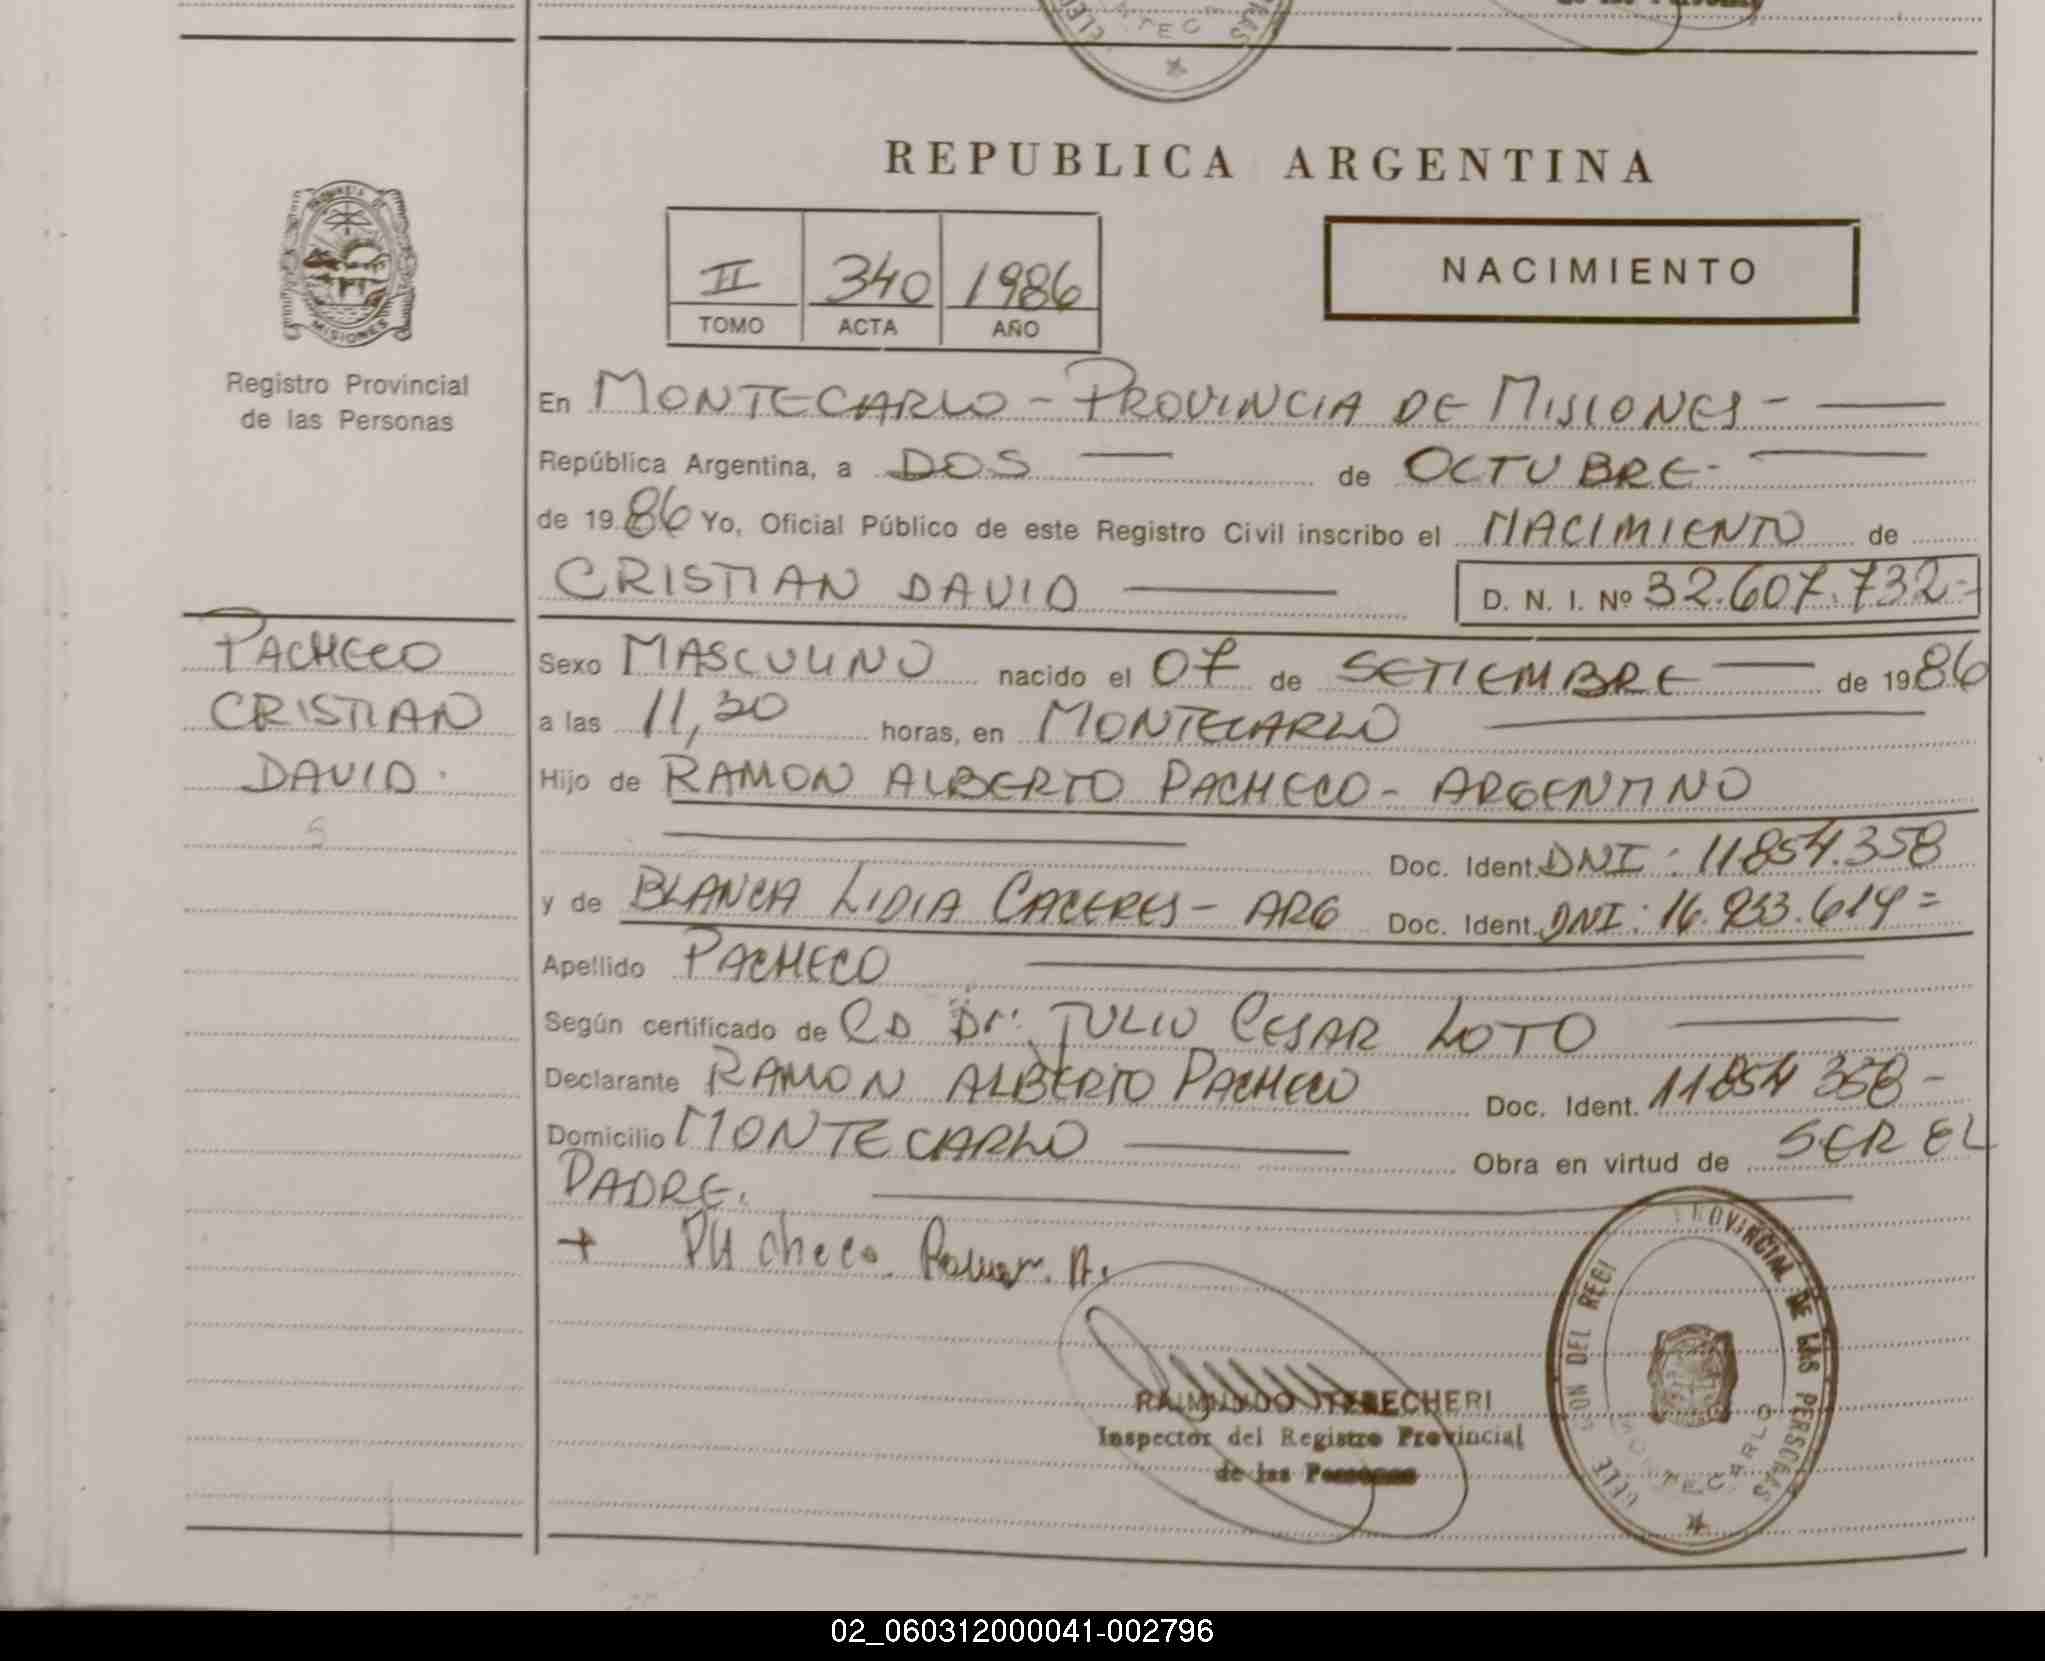 REPUBLICA ARGENTINA
II 340 1986
TOMO ACTA AÑO
NACIMIENTO
MISIONES
Registro Provincial
de las Personas
En MONTECARLO - PROVINCIA DE MISIONES -
República Argentina, a DOS de OCTUBRE -
de 1986 Yo, Oficial Público de este Registro Civil inscribo el NACIMIENTO de
CRISTIAN DAVID D. N. I. Nº 32.607.732-
PACHECO
CRISTIAN
DAVID.
Sexo MASCULINO nacido el 07 de SETIEMBRE de 1986
a las 11,30 horas, en MONTECARLO
Hijo de RAMON ALBERTO PACHECO - ARGENTINO
Doc. Ident. DNI: 11.854.358
y de BLANCA LIDIA CACERES - ARG Doc. Ident. DNI:
Apellido PACHECO
Según certificado de CD Dr. JULIO CESAR LOTO
Declarante RAMON ALBERTO PACHECO Doc. Ident. 11854 358 -
Domicilio MONTECARLO Obra en virtud de SER EL
PADRE.
+ Pacheco Ramon. A.
RAIMUNDO
Inspector del Registro Provincial
de las Personas
PROVINCIAL DE LAS PERSONAS
MONTECARLO
02_060312000041-002796